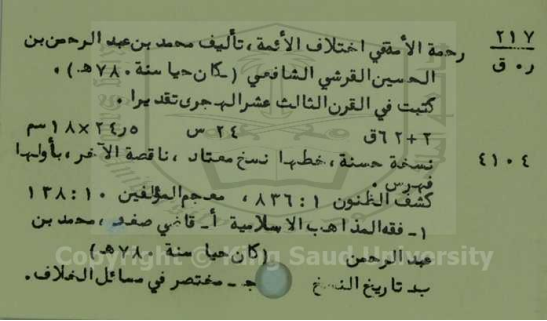 ٢١٧ رحمة الأمة في اختلاف الأئمة، تأليف محمد بن عبد الرحمن بن
ر٠ق الحسين القرشي الشافعي (كان حيا سنة ٧٨٠هـ).
كتبت في القرن الثالث عشر الهجرى تقديرا.
٢+٦٢ق ٢٤ س ٢٤ر٥×١٨سم
٤١٠٤ نسخة حسنة، خطها نسخ معتاد، ناقصة الآخر، بأولها
فهرس.
كشف الظنون ١: ٨٣٦، معجم المؤلفين ١٠: ١٣٨
١- فقه المذاهب الاسلامية أ- قاضي صفد، محمد بن
عبد الرحمن (كان حيا سنة ٧٨٠هـ)
ب- تاريخ النسخ جـ- مختصر في مسائل الخلاف.
Copyright © King Saud University